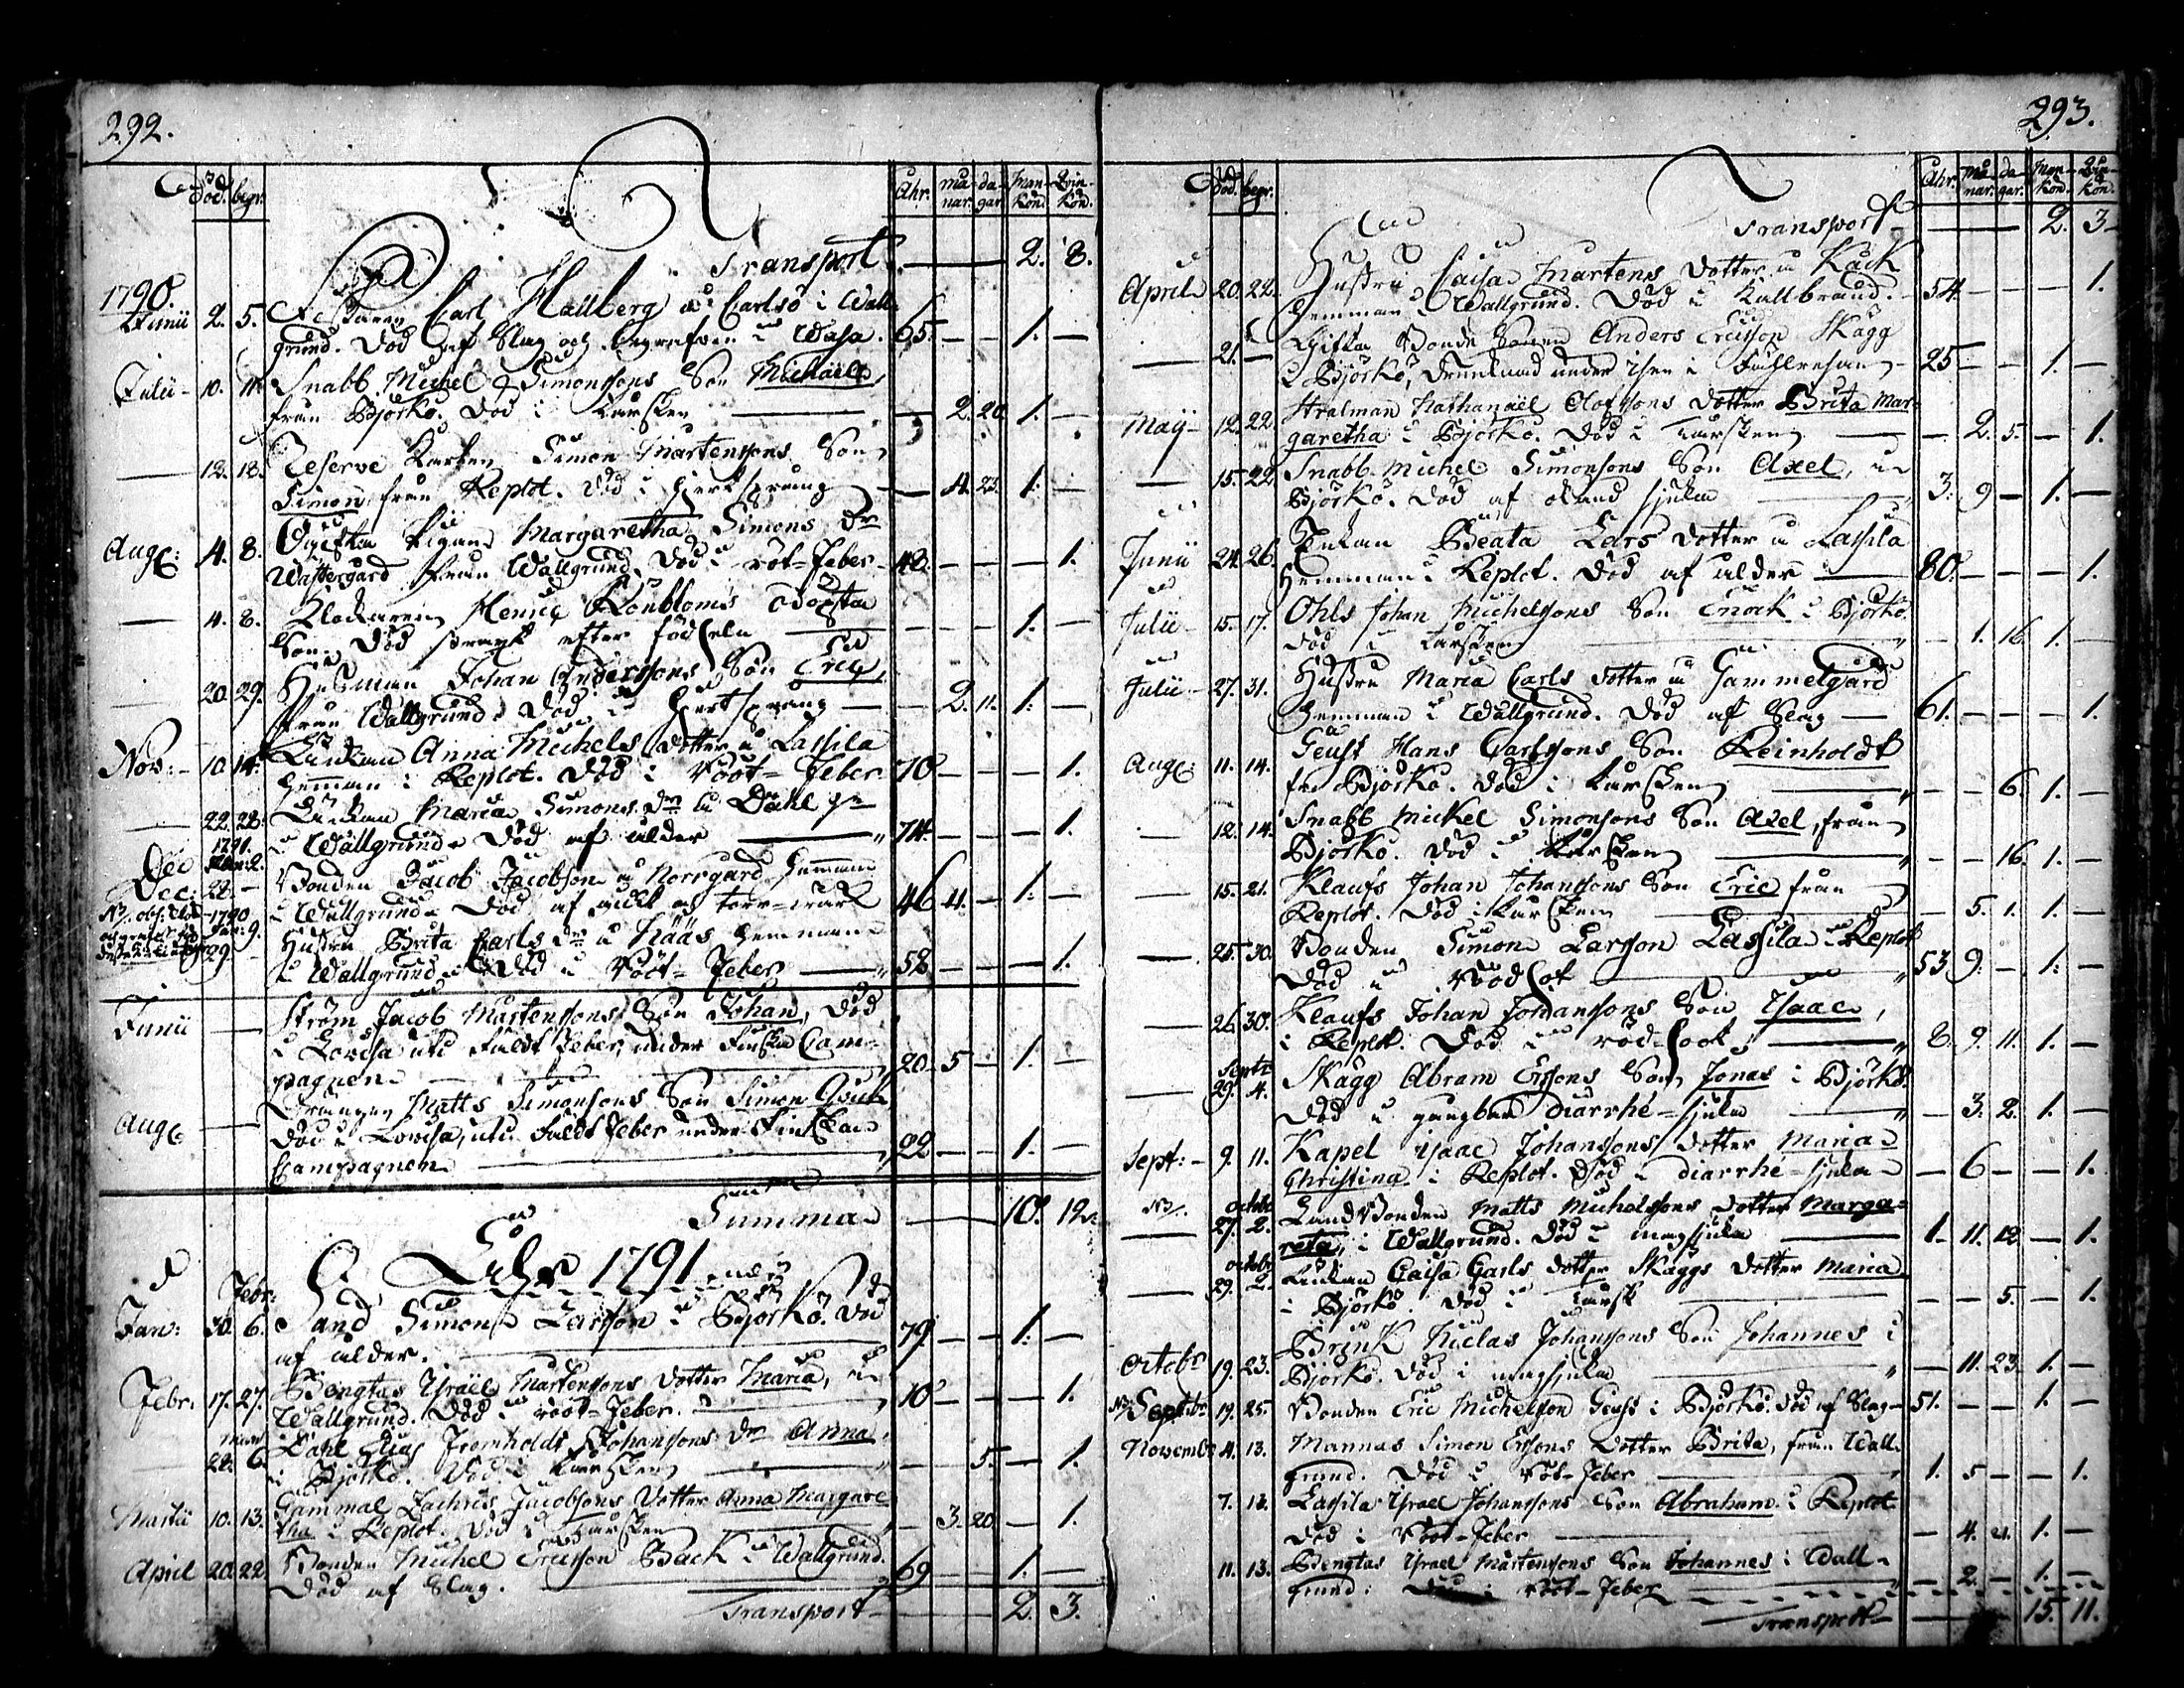 292.
Död. begr. Åhr. må- nar. da- gar. Man- kön. Qvin- kön.
Transport 2. 8.
1790.
Junii 2. 5. Carl Hallberg å Carlsö i Wall-
grund. död af slag och begrafven i Wasa. 65. — — 1. —
Julii 10. 11. Snabb Michel Simonssons Son Michaël,
från Björkö. död i — 2. 20. 1. —
— 12. 18. Reserve Karlen Simon Mårtenssons Son
Simon från Replot. död i — 4. 23. 1. —
Aug: 4. 8. Ogifta Pigan Margaretha Simons Dr
Wästergård från Wallgrund. död i röt-feber 48. — — — 1.
— 4. 8. Klockaren Henric Rönbloms odöpta
Son. död strax efter födseln — — — 1. —
20. 29. Husman Johan Anderssons Son Eric,
från Wallgrund. död i — 2. 11. 1. —
Nov: 10. 14. Enkan Anna Michels dotter å Lassila
hemman i Replot. död i Rööt-feber 70 — — — 1.
— 22. 28. Enkan Maria Simons Dr å Dahl
i Wallgrund. död af ålder 74. — — — 1.
1791.
Dec: 22. — Bonden Jacob Jacobson å Norrgård hemman
i Wallgrund. död af 46 4. — 1. —
1790
29. Jan: 9. Hustru Brita Carls dr å Nääs hemman
i Wallgrund. död i Rööt-feber 58 — — — 1.
Junii — Ström Jacob Mårtenssons Son Johan, död
i Lovisa uti Fält feber, under Finska Cam-
pagnen 20 5 — 1. —
Aug: — Drängen Matts Simonsons Son Simon
död i Lovisa, uti Fält feber under Finska
Campagnen 22 — — 1. —
Summa 10. 12.
Åhr 1791
Febr:
Jan: 30. 6. Sand Simon Larsson i Björkö. död
af ålder. 79. — — 1. —
Febr: 17. 27. Bengtas Israël Mårtensons dotter Maria, i
Wallgrund. död i rööt-feber. 10 — — — 1.
28. 6. Dahl Fromholdt Johanssons Dr Anna,
i Björkö. död i — — 5. — 1.
Martii 10. 13. Gammal Zachris Jacobsons dotter Anna Margare-
tha i Replot. död i — 3. 20. — 1.
April 20. 22. Bonden Michel Ericsson Back i Wallgrund.
död af Slag. 69 — — 1. —
Transport 2. 3.
293.
Död. begr. Åhr. Må- nar. da- gar. Man- kön. Qvin- kön.
Transport 2. 3
April 20. 22. Hustru Caisa Mårtens dotter å Käck
hemman i Wallgrund. död i Kallbrand. 54. — — — 1.
— 21. — Gifta Bonde Sonen Anders Ericsson Skagg
i Björkö, drunknad under isen i 25 — — 1. —
Maij 12. 22. Stralman Nathanaël Olofssons dotter Brita Mar-
garetha i Björkö. död i — 2. 5. — 1.
— 15. 22 Snabb Michel Simonsons Son Axel, i
Björkö. död af okänd sjuka 3. 9 — 1. —
Junii 24. 26. Enkan Beata Lars dotter å Lassila
hemman i Replot. död af ålder 80. — — — 1.
Julii 15. 17. Ohls Johan Michelssons Son Enock i Björkö.
död i — 1. 16. 1. —
Julii 27. 31. Hustru Maria Carls dotter å Gammelgård
hemman i Wallgrund. död af Slag 61. — — — 1.
Aug: 11. 14. Geust Hans Carlssons Son Reinholdt
från Björkö. död i — — 6. 1. —
— 12. 14. Snabb Mickel Simonsons Son Axel, från
Björkö. död i — — 16. 1. —
— 15. 21. Klaufs Johan Johanssons Son Eric från
Replot. död i — 5. 1. 1. —
— 25. 30. Bonden Simon Larsson Lassila i Replot
död i Rödsot 53 9. — 1. —
— 26. 30. Klaufs Johan Jordanssons Son Isaac,
i Replot. död i röd-soot 8. 9. 11. 1. —
Septr
— 29. 4. Skagg Abram Ersons Son Jonas i Björkö.
död i gångbar diarrhé-sjuka — 3. 2. 1. —
Sept: 9. 11. Kapel Isaac Johanssons dotter Maria
Christina i Replot. död i diarrhé-sjuka — 6 — — 1.
NB. octobr
— 27. 2. Landbonden Matts Michelssons dotter Marga-
reta, i Wallgrund. död i magsjuka 1. 11. 12. — 1.
octobr
— 29. 2. Enkan Caisa Carls dotter Skaggs dotter Maria
i Björkö. död i — — 5. — 1.
Octobr 19. 23. Brink Niclas Johanssons Son Johannes i
Björkö. död i magsjuka — 11. 23. 1. —
NB. Septbr 19. 25. Bonden Eric Michelson Geust i Björkö. död af Slag 51. — — 1. —
Novembr 4. 13. Mannas Simon Ersons dotter Brita, från Wall-
grund. död i röt-feber 1. 5 — — 1.
7. 13. Lassila Israel Johanssons Son Abraham i Replot
död i Rööt-feber — 4. 21. 1. —
11. 13. Bengtas Israel Mårtensons Son Johannes i Wall-
grund: död i rööt-feber — 2. — 1. —
Transport 15. 11.